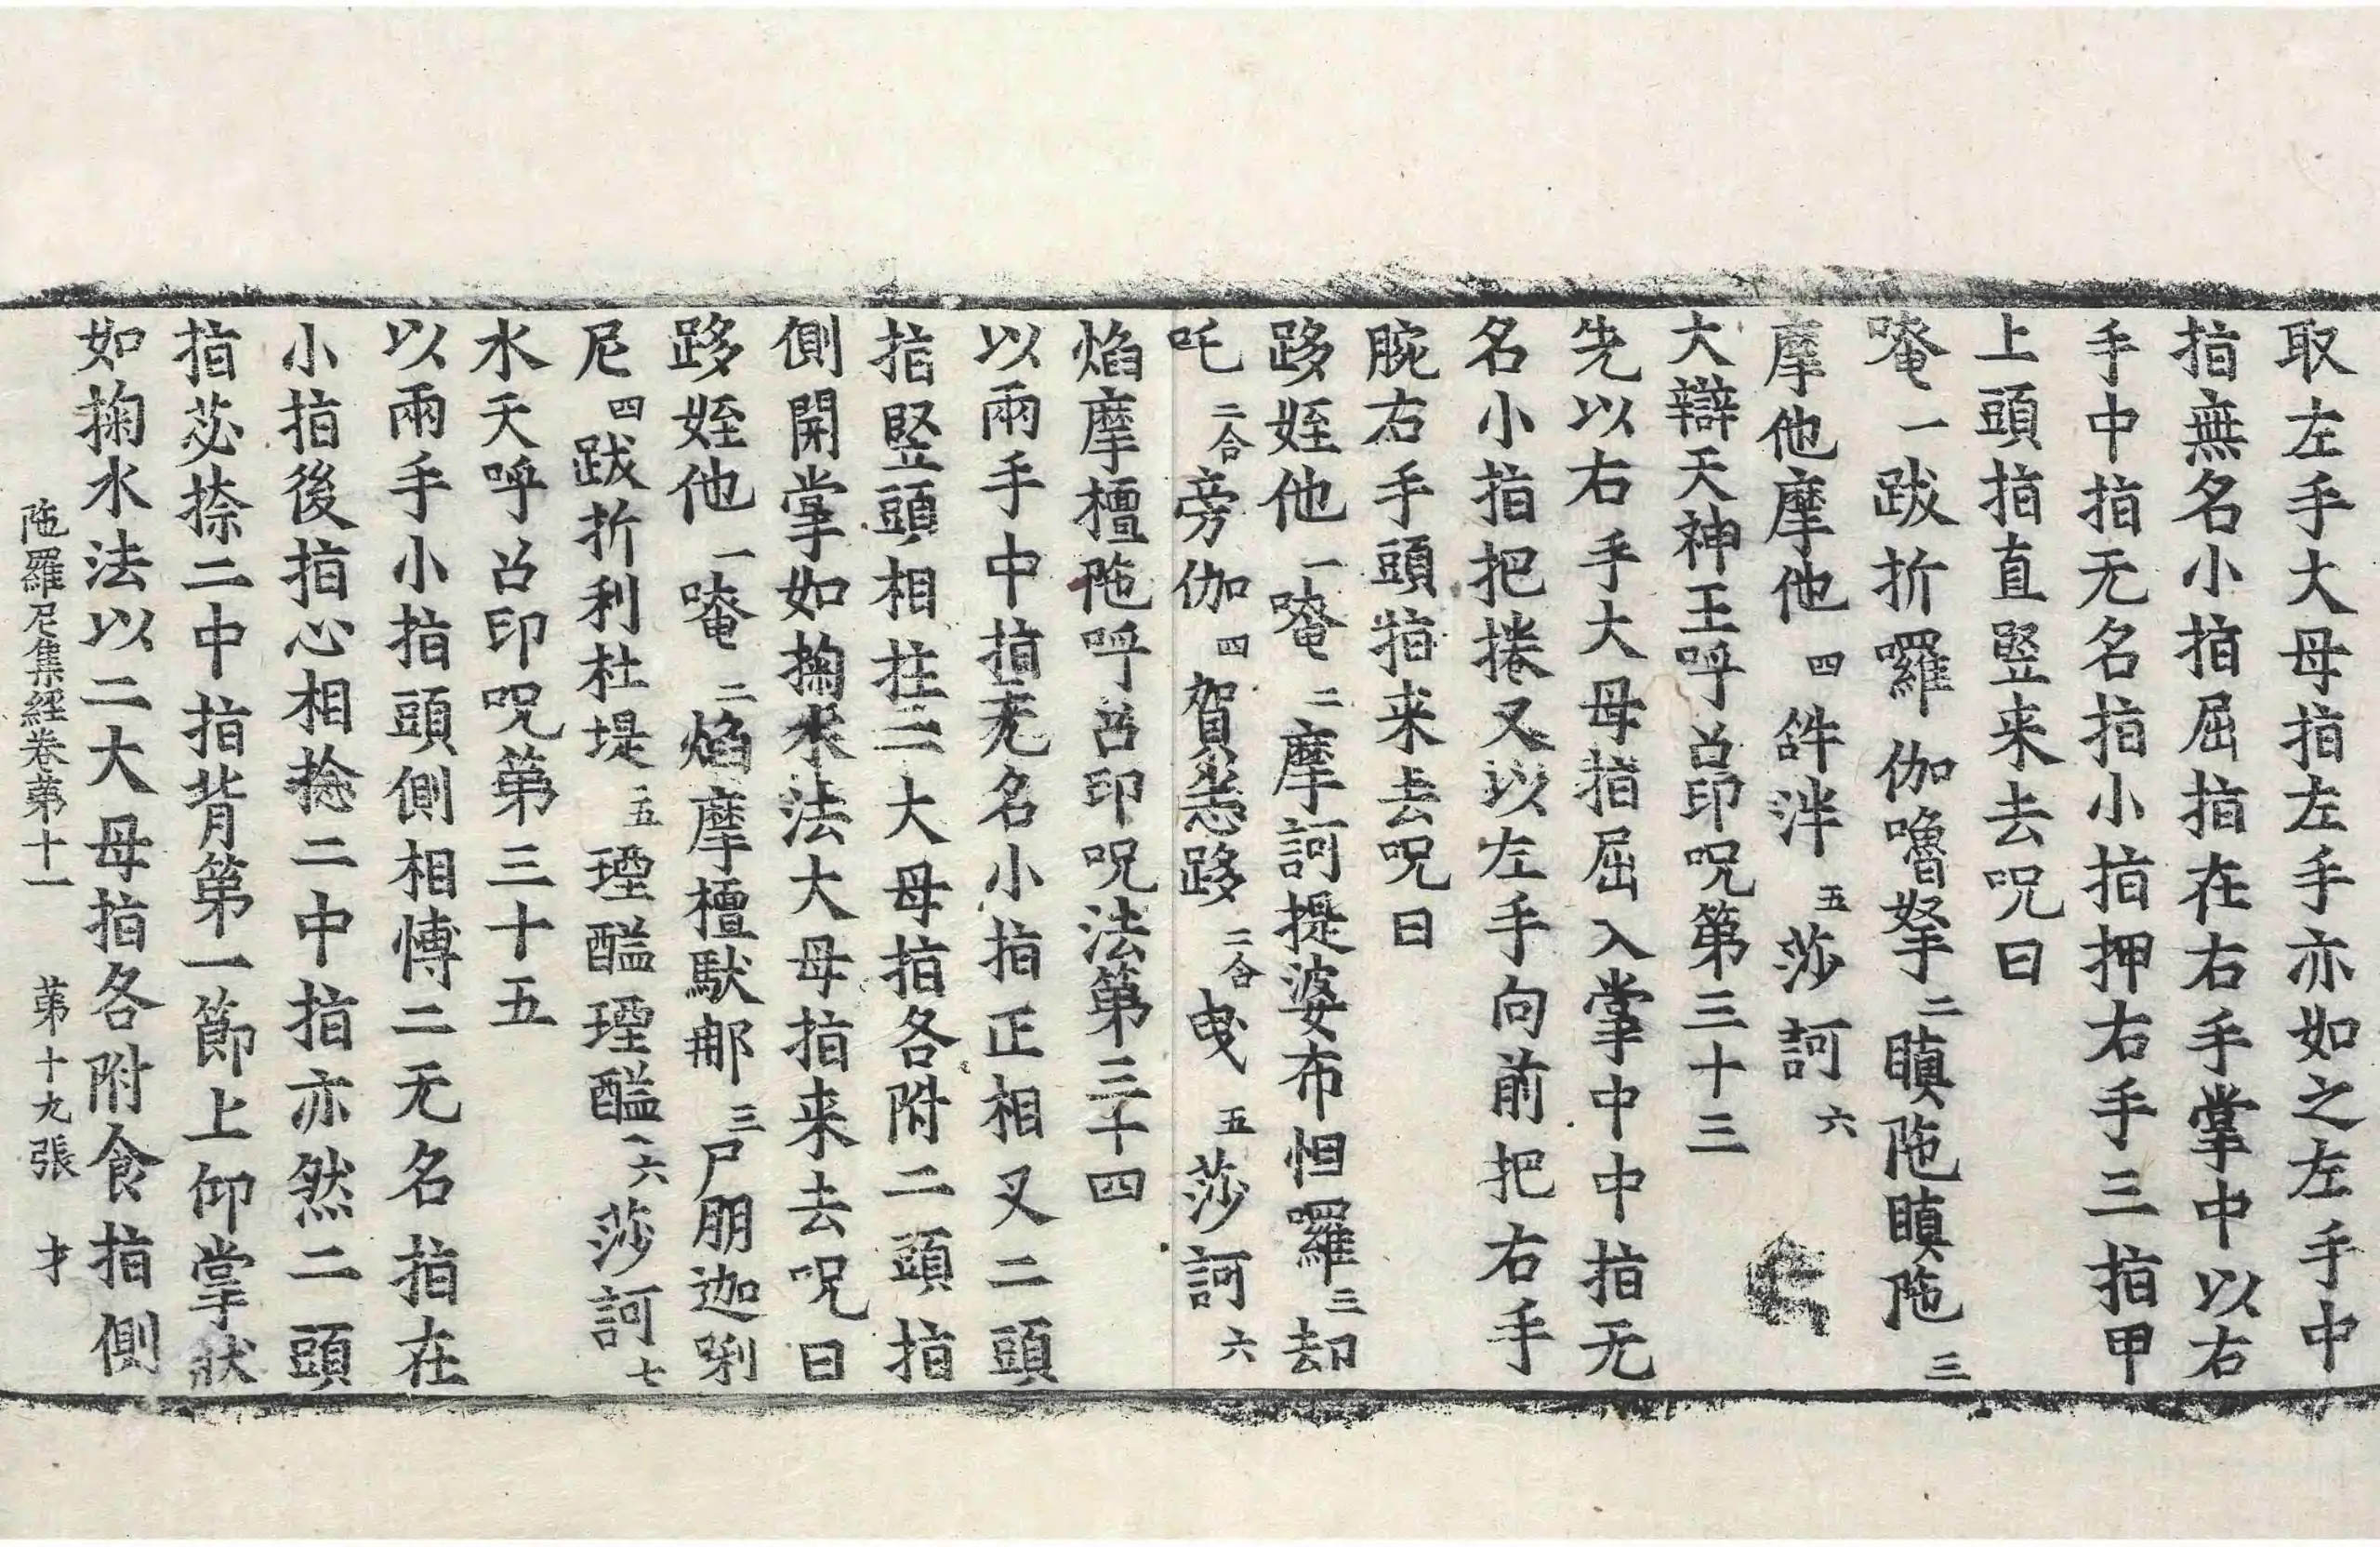 取左手大母指左手亦如之左手中
指無名小指屈指在右手掌中以右
手中指无名指小指押右手三指甲
上頭指直竪来去呪曰
唵一跋折囉伽嚕拏二瞋陁瞋陁三
摩他摩他四𤙖泮五莎訶六
大辯天神王呼召印呪第三十三
先以右手大母指屈入掌中中指无
名小指把捲又以左手向前把右手
腕右手頭指来去呪曰
跢姪他一唵二摩訶提婆布怛羅三却
吒二合旁伽四賀悉跢二合曳五莎訶六
焰摩檀陁呼召印呪法第三十四
以兩手中指无名小指正相叉二頭
指竪頭相拄二大母指各附二頭指
側開掌如掬水法大母指来去呪曰
跢姪他一唵二焰摩檀馱那三尸朋迦唎
尼四跋折利杜堤五瑿醯瑿醯六莎訶七
水天呼召印呪第三十五
以兩手小指頭側相愽二无名指在
小指後指心相捻二中指亦然二頭
指苾捺二中指背第一節上仰掌狀
如掬水法以二大母指各附食指側
陁羅尼集經卷第十一 第十九張 才